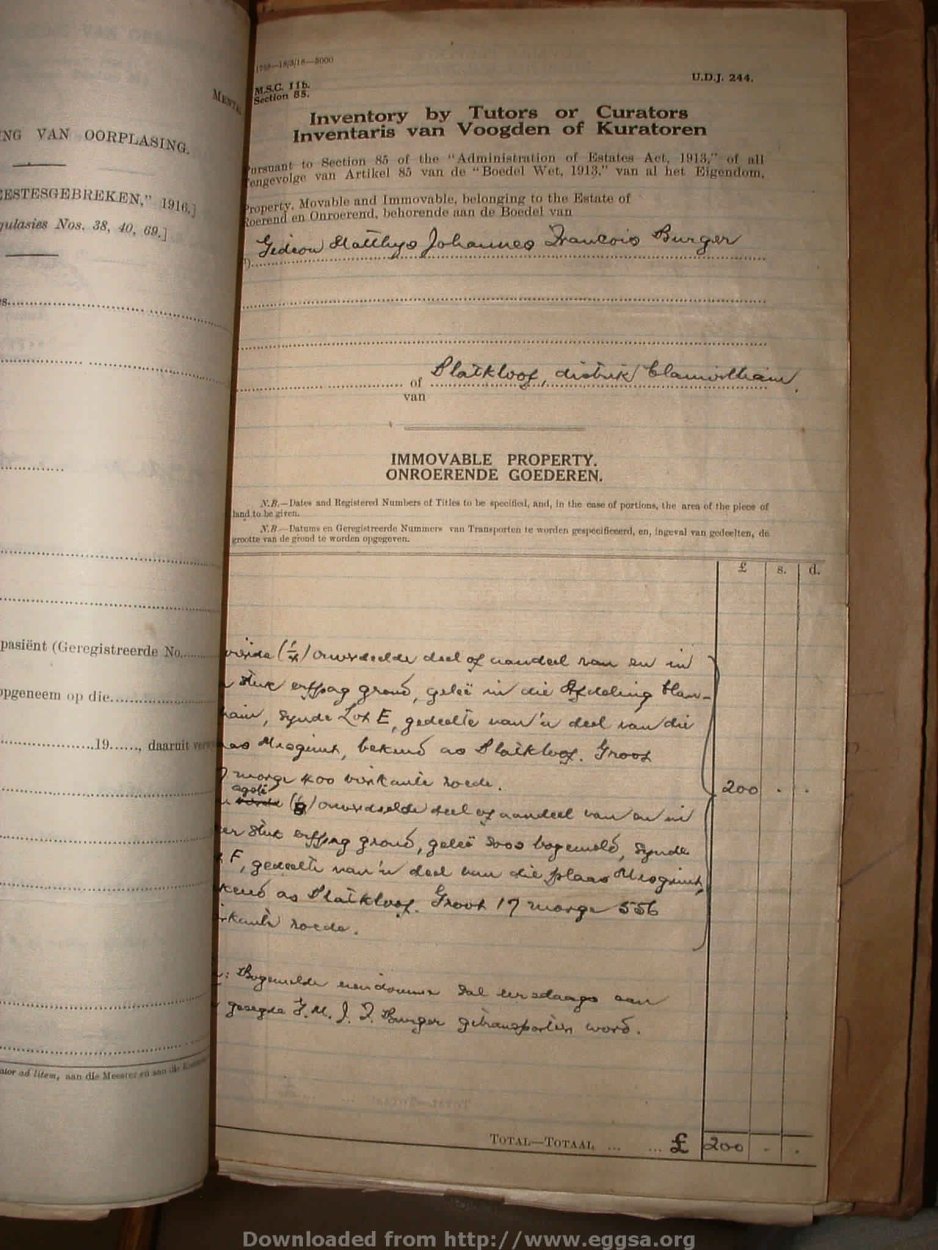 MENTA
NG VAN OORPLASING.
EESTESGEBREKEN," 1916.]
gulasies Nos. 38, 40, 69.]
s.
pasiënt (Geregistreerde No.
opgeneem op die
19......, daaruit
ator ad litem, aan die Meester en aan die
18/3/18—5000
M.S.C. 11b.
Section 85.
U.D.J. 244.
Inventory by Tutors or Curators
Inventaris van Voogden of Kuratoren
Pursuant to Section 85 of the "Administration of Estates Act, 1913," of all
Tengevolge van Artikel 85 van de "Boedel Wet, 1913," van al het Eigendom,
Property, Movable and Immovable, belonging to the Estate of
Roerend en Onroerend, behorende aan de Boedel van
Gideon Matthys Johannes Francois Burger
of Platkloof, distrik Clanwilliam.
van
IMMOVABLE PROPERTY.
ONROERENDE GOEDEREN.
N.B.—Dates and Registered Numbers of Titles to be specified, and, in the case of portions, the area of the piece of
land to be given.
N.B.—Datums en Geregistreerde Nummers van Transporten te worden gespecificeerd, en, ingeval van gedeelten, de
grootte van de grond te worden opgegeven.
£ s. d.
(1/4) onverdeelde deel of aandeel van en in
stuk erfpag grond, geleë in die Afdeling Clan-
Lot E, gedeelte van 'n deel van die
bekend as Platkloof. Groot
morge 400 vierkante roede.
200 . .
agste
(1/8) onverdeelde deel of aandeel van en in
stuk erfpag grond, geleë soos bogemeld, synde
F, gedeelte van 'n deel van die plaas
kend as Platkloof. Groot 17 morge 556
rkante roede.
: Bogemelde eiendomme sal eersdaags aan
gesegde G. M. J. F. Burger getransporteer word.
TOTAL—TOTAAL ... ... £ 200 . .
Downloaded from http://www.eggsa.org